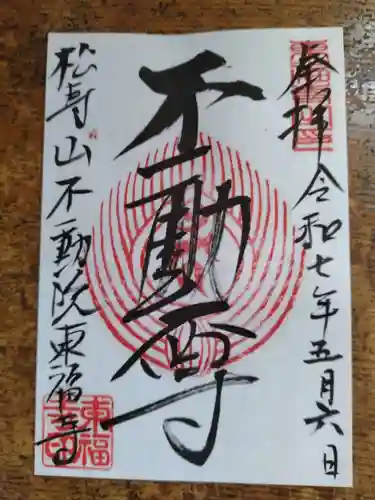 奉拝
令和七年五月六日
不動尊
松寿山不動院東福寺
東福